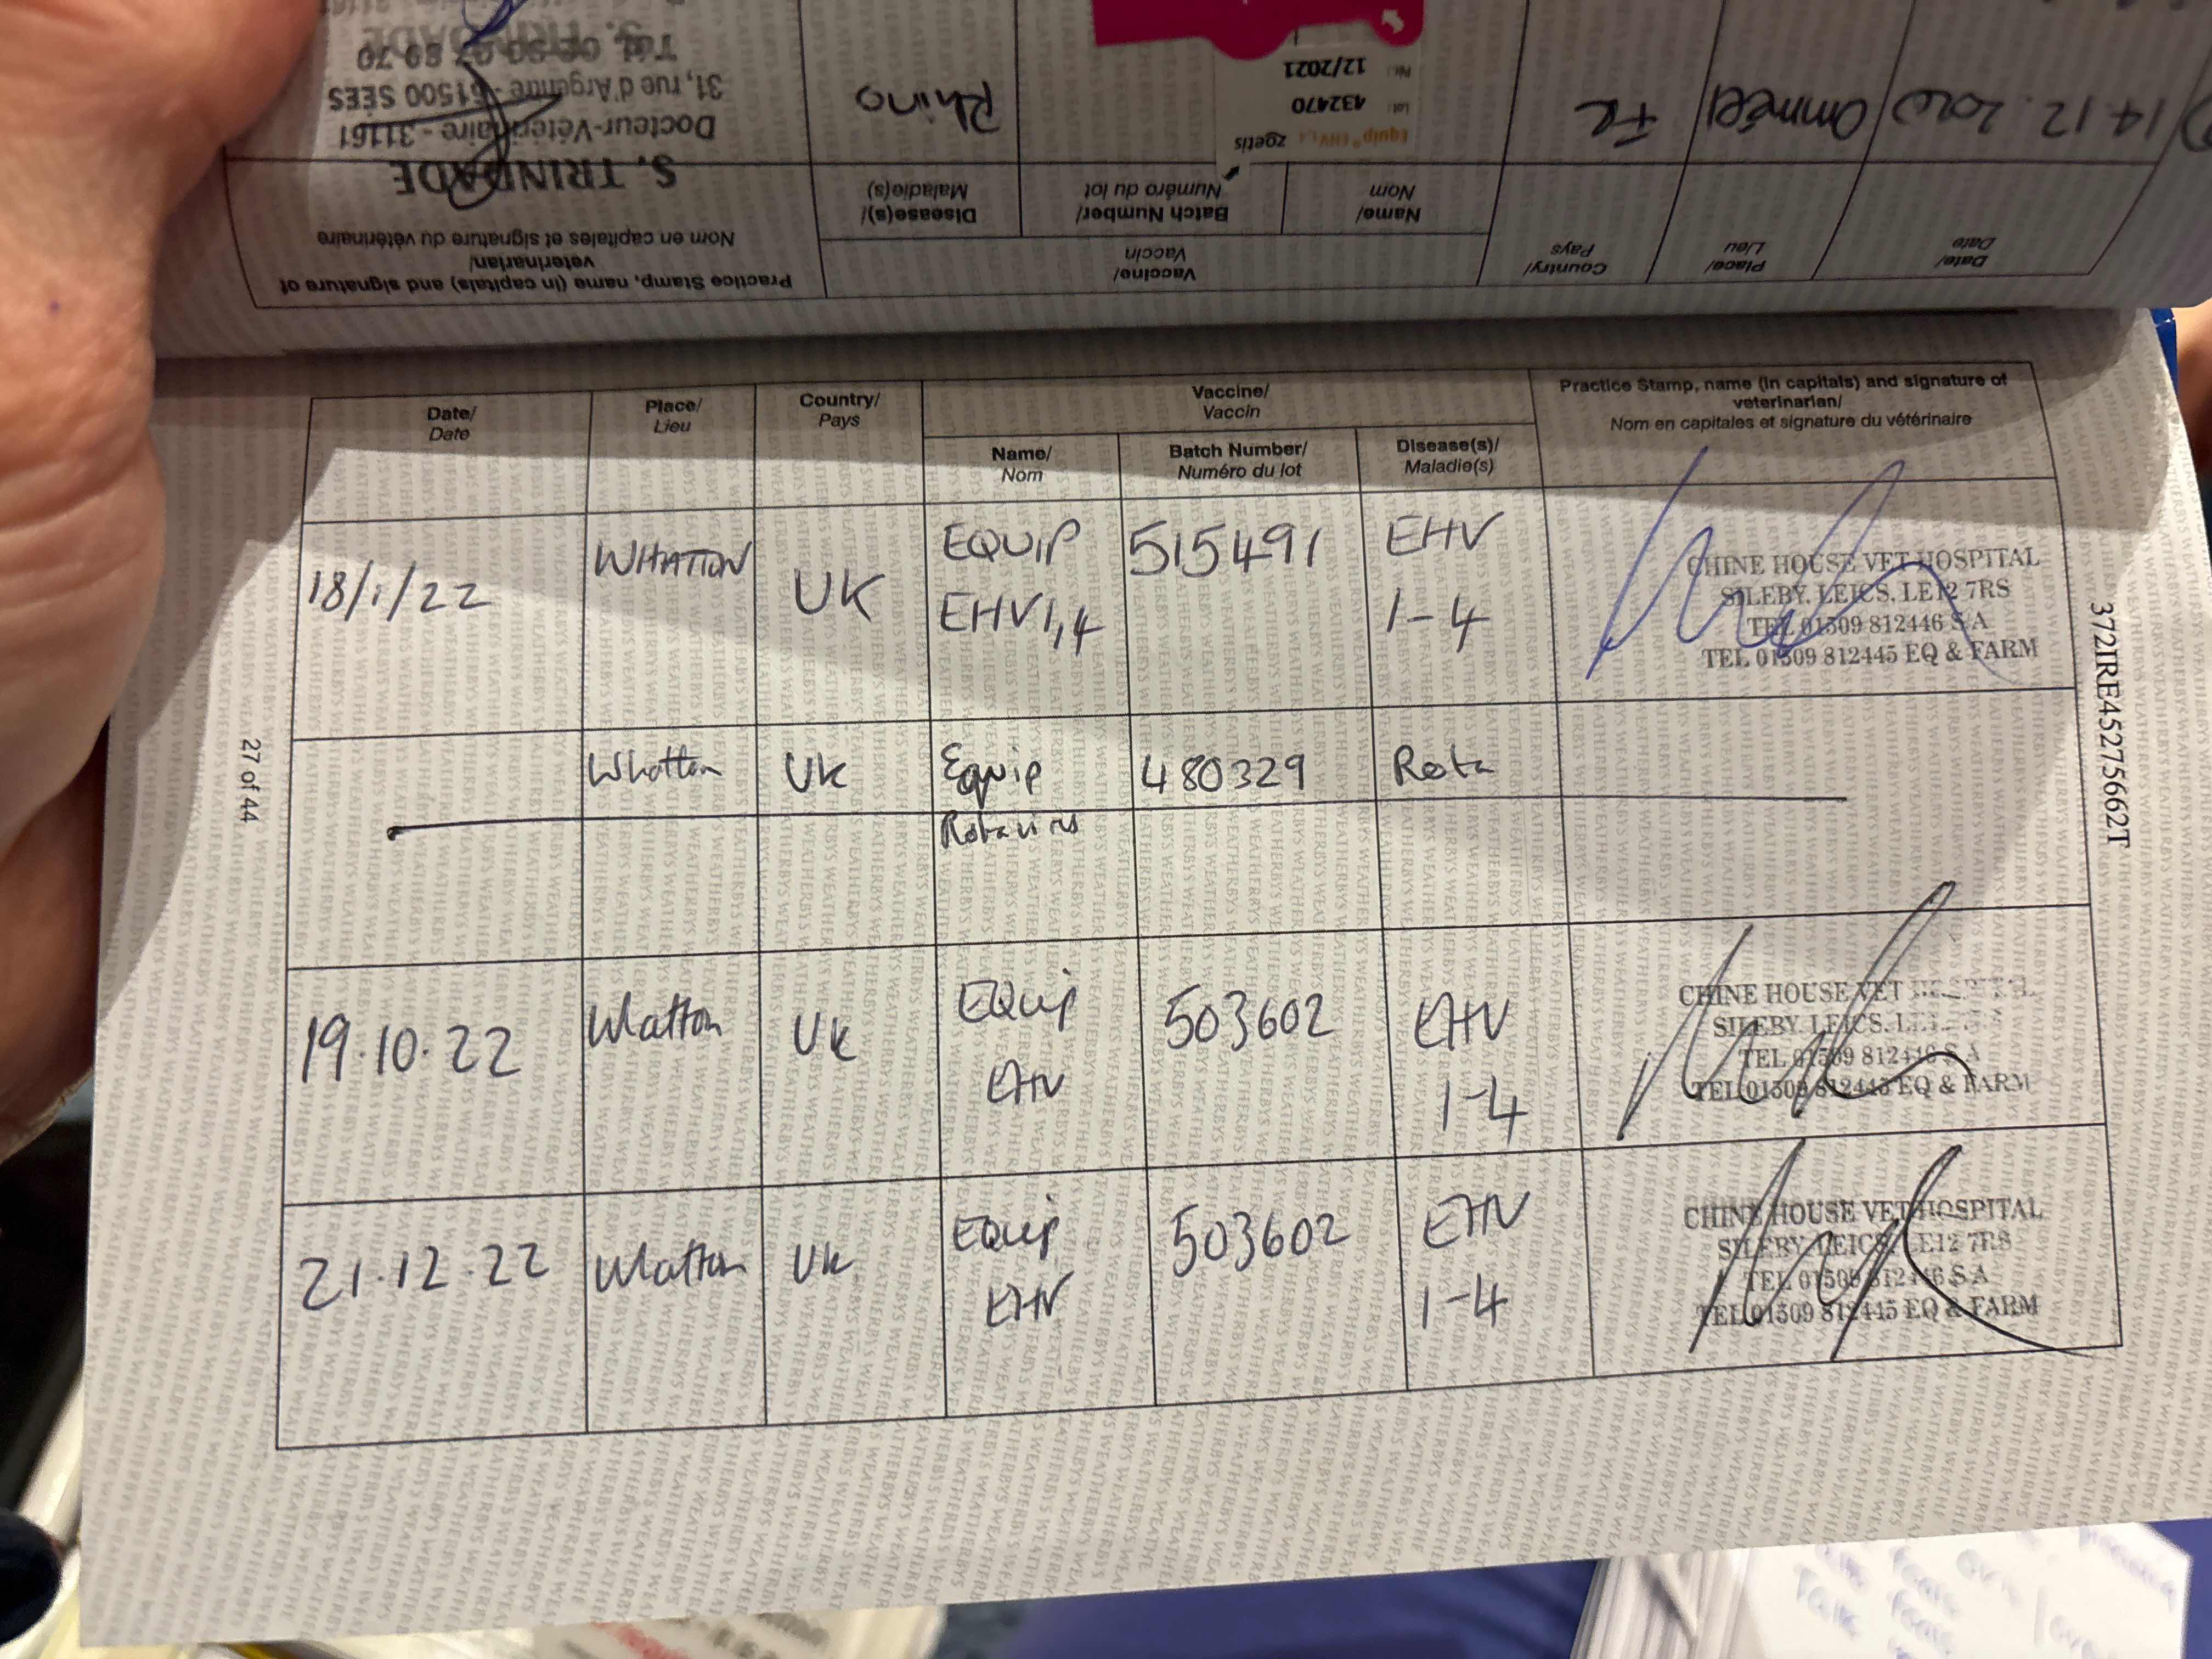 Date/
Date
Place/
Lieu
Country/
Pays
Vaccine/
Vaccin
Practice Stamp, name (in capitals) and signature of
veterinarian/
Nom en capitales et signature du vétérinaire
Name/
Nom
Batch Number/
Numéro du lot
Disease(s)/
Maladie(s)
18/1/22
WHATTON
UK
EQUIP
EHV1,4
515491
EHV
1-4
CHINE HOUSE VET HOSPITAL
SILEBY, LEICS, LE12 7RS
TEL 01509 812446 S/A
TEL 01509 812445 EQ & FARM
Whatton
UK
Equip
Rotavirus
480329
Rota
19.10.22
Whatton
UK
EQuip
EHV
503602
EHV
1-4
CHINE HOUSE VET HOSPITAL
SILEBY, LEICS,
TEL 01509 812446 S/A
TEL 01509 812445 EQ & FARM
21.12.22
Whatton
UK
EQuip
EHV
503602
EHV
1-4
CHINE HOUSE VET HOSPITAL
SILEBY, LEICS, LE12 7RS
TEL 01509 812446 S/A
TEL 01509 812445 EQ & FARM
27 of 44
372IRE45275662T
Date/
Date
Place/
Lieu
Country/
Pays
Vaccine/
Vaccin
Practice Stamp, name (in capitals) and signature of
veterinarian/
Nom en capitales et signature du vétérinaire
Name/
Nom
Batch Number/
Numéro du lot
Disease(s)/
Maladie(s)
14.12.2020
FR
Equip EHV1,4 zoetis
Lot: 432470
12/2021
Rhino
S. TRINDADE
Docteur-Vétérinaire - 31161
31, rue d'Argentré - 61500 SÉES